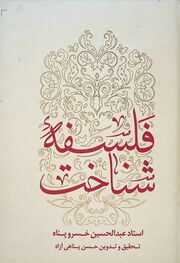 فلسفهٔ
شناخت
استاد عبدالحسین خسروپناه
تحقیق و تدوین حسن پناهی آزاد